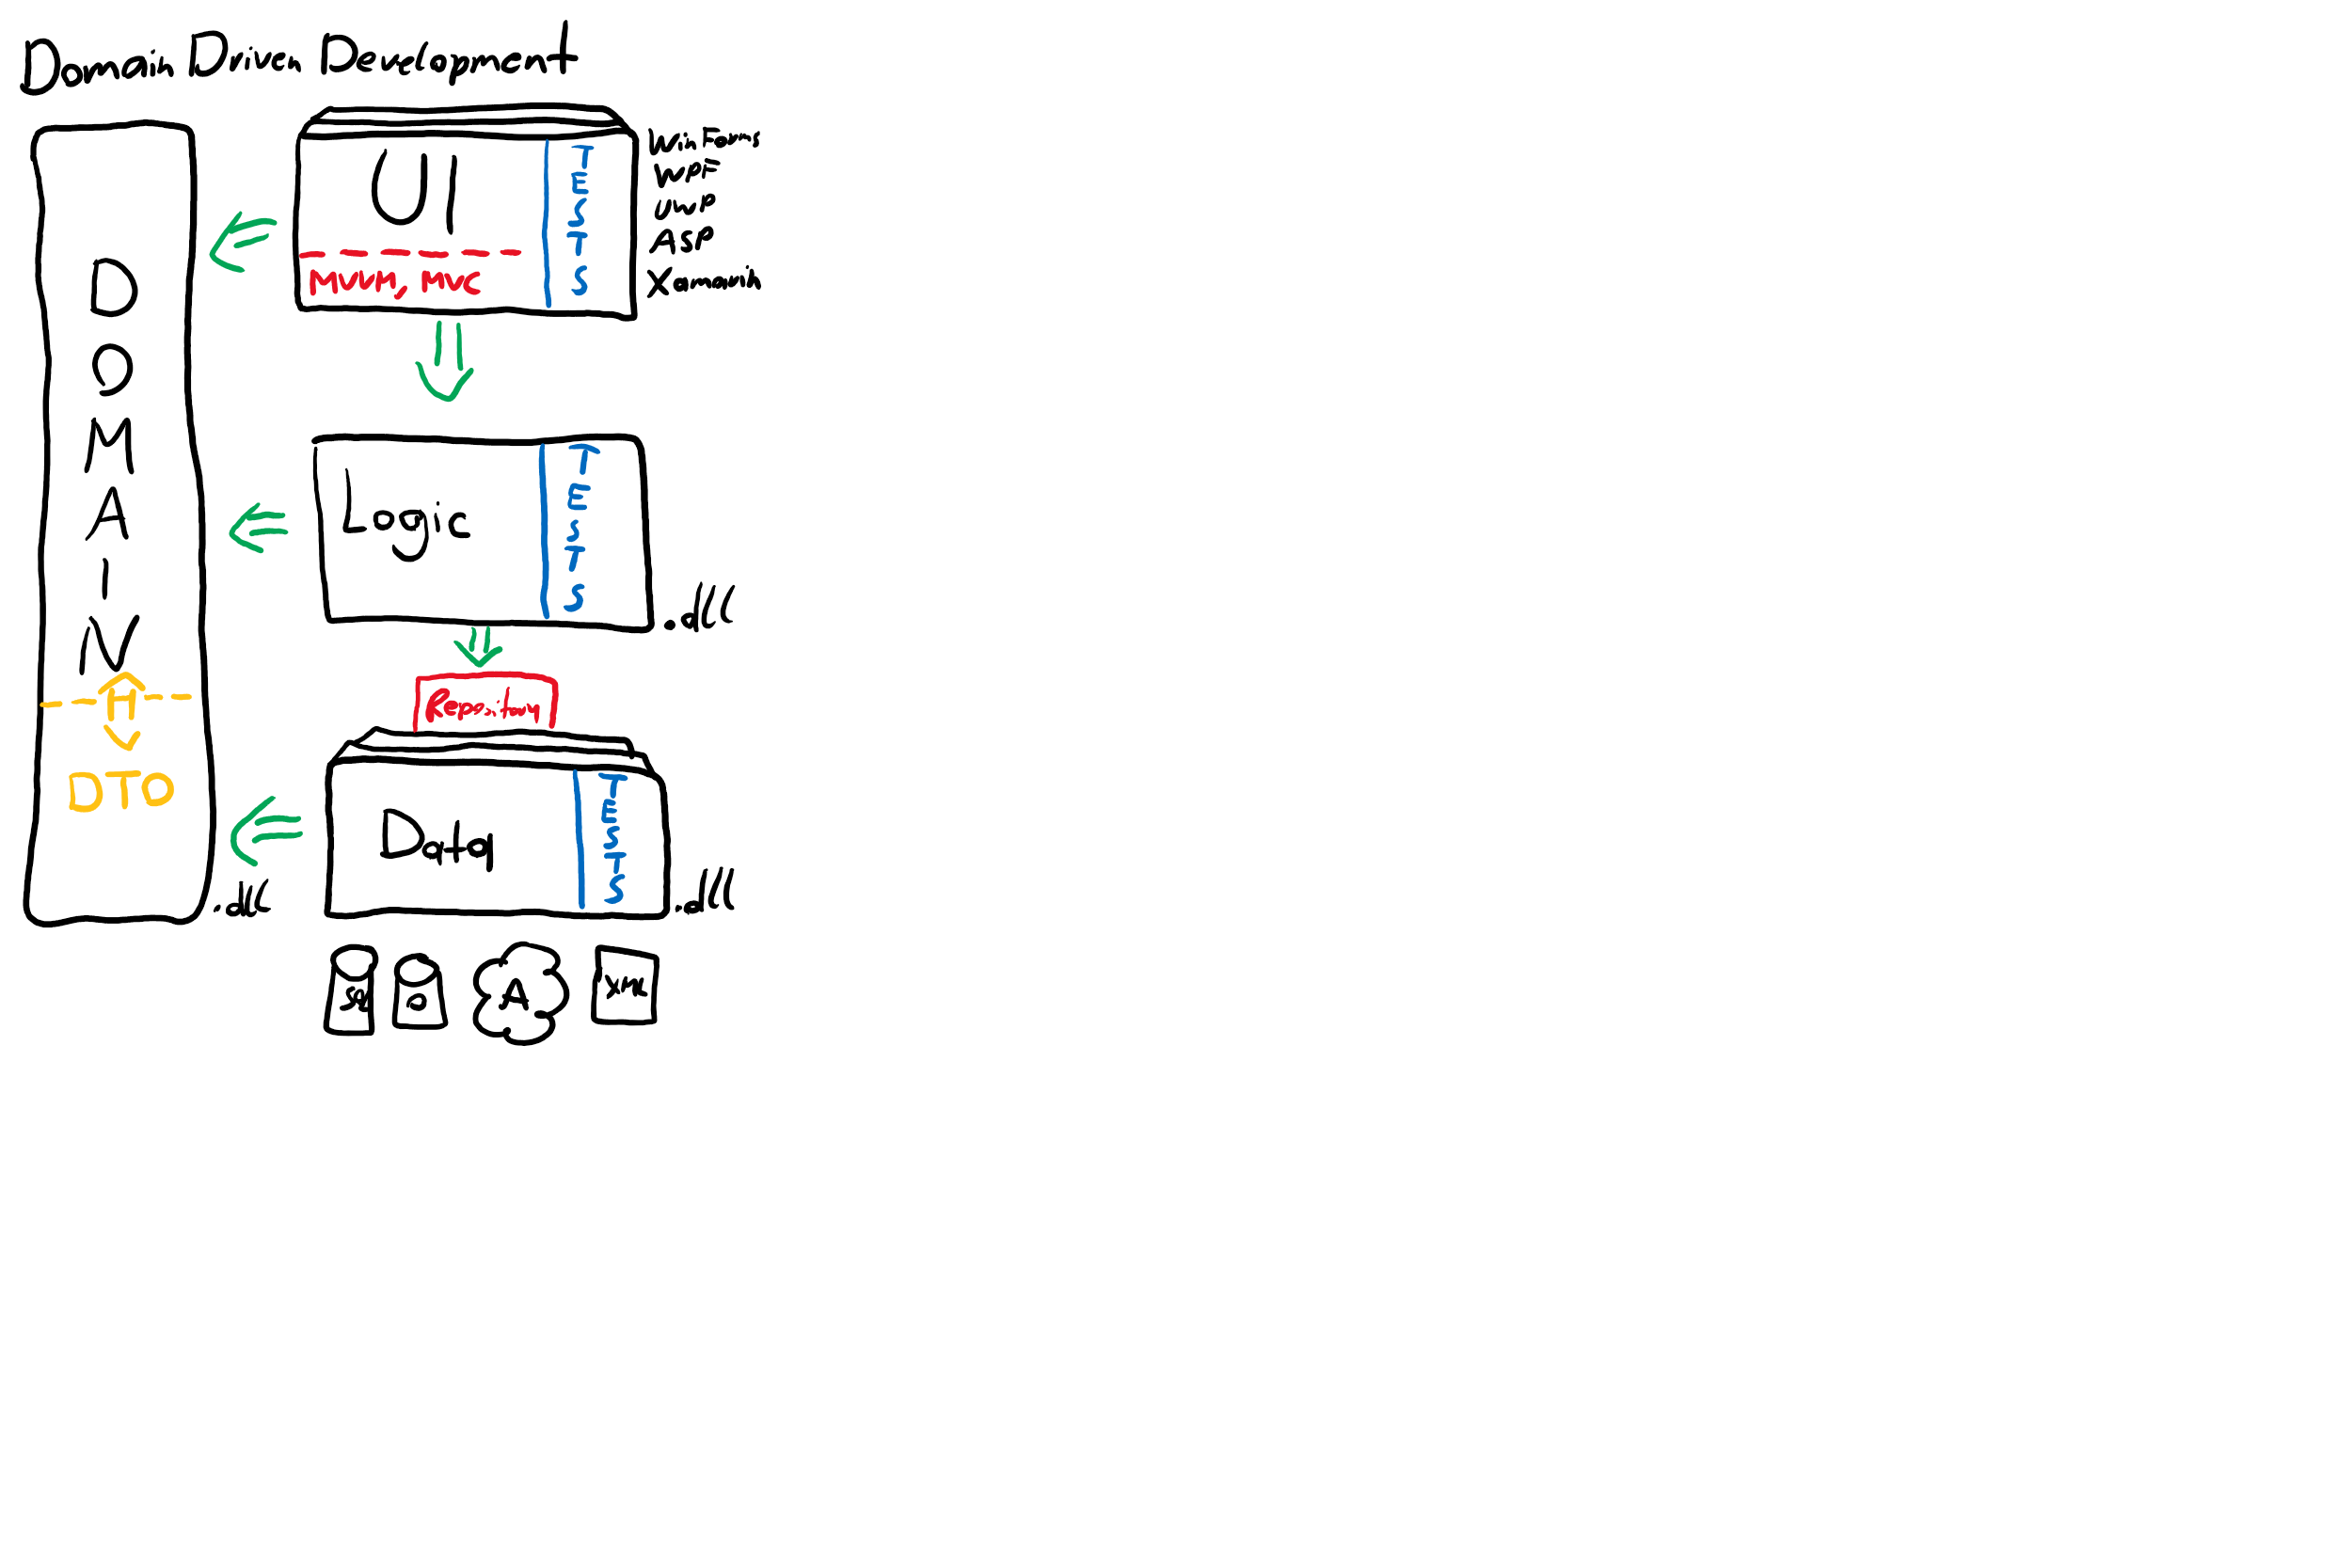 Domain Driven Development
DOMAIN
DTO
.dll
UI
MVVM, MVC
TESTS
WinForms
WPF
UWP
ASP
Xamarin
Logic
TESTS
.dll
Repository
Data
TESTS
.dll
A
XML